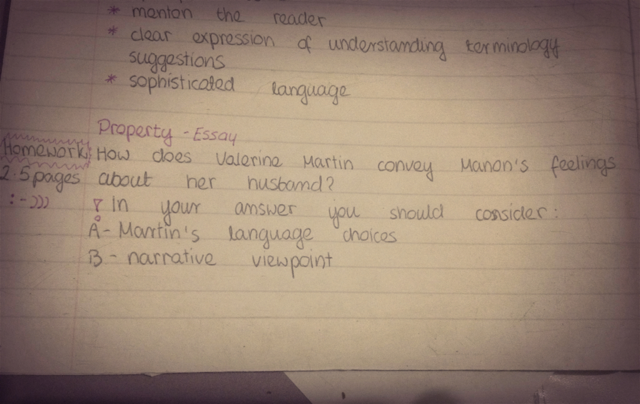 * mention the reader
* clear expression of understanding terminology
suggestions
* sophisticated language
Property - Essay
Homework How does Valerine Martin convey Manon's feelings
2.5 pages about her husband?
:-))) ! In your answer you should consider:
A - Martin's language choices
B - narrative viewpoint